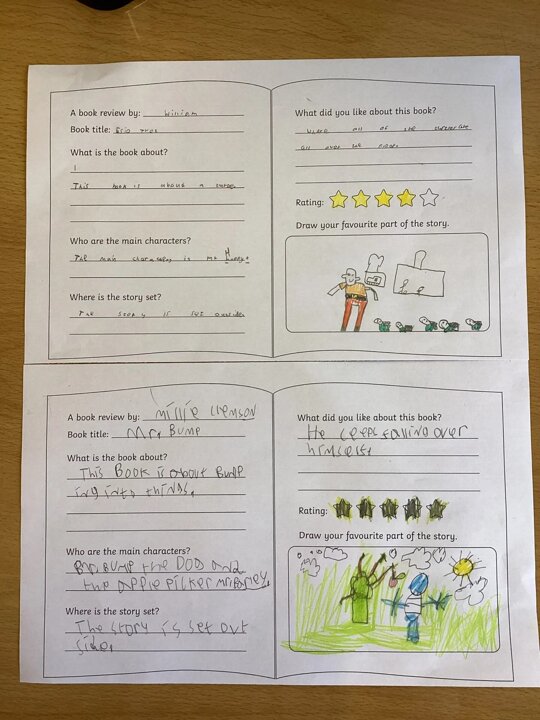 A book review by: William
Book title:
What is the book about?
This book is about a
Who are the main characters?
The main is mr
Where is the story set?
The story is set outside.
What did you like about this book?
all of the
all over the
Rating:
Draw your favourite part of the story.
A book review by: millie
Book title: Mr. Bump
What is the book about?
This Book is about Bump
ing into things.
Who are the main characters?
mr. Bump the DOD and
the apple picker mr Barley.
Where is the story set?
The story is set out
side.
What did you like about this book?
He ceeps falling over
himself.
Rating:
Draw your favourite part of the story.